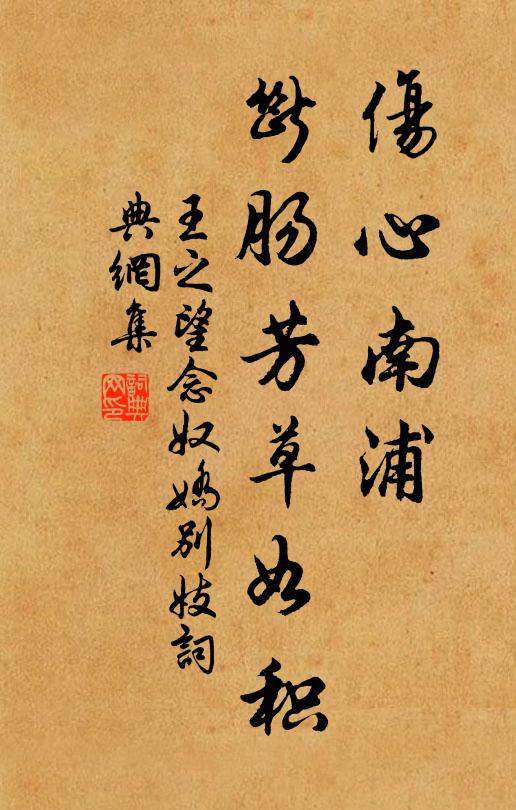 傷心南浦
斷肠芳草如积
王之望念奴嬌别妓詞
典網集
詞典网印